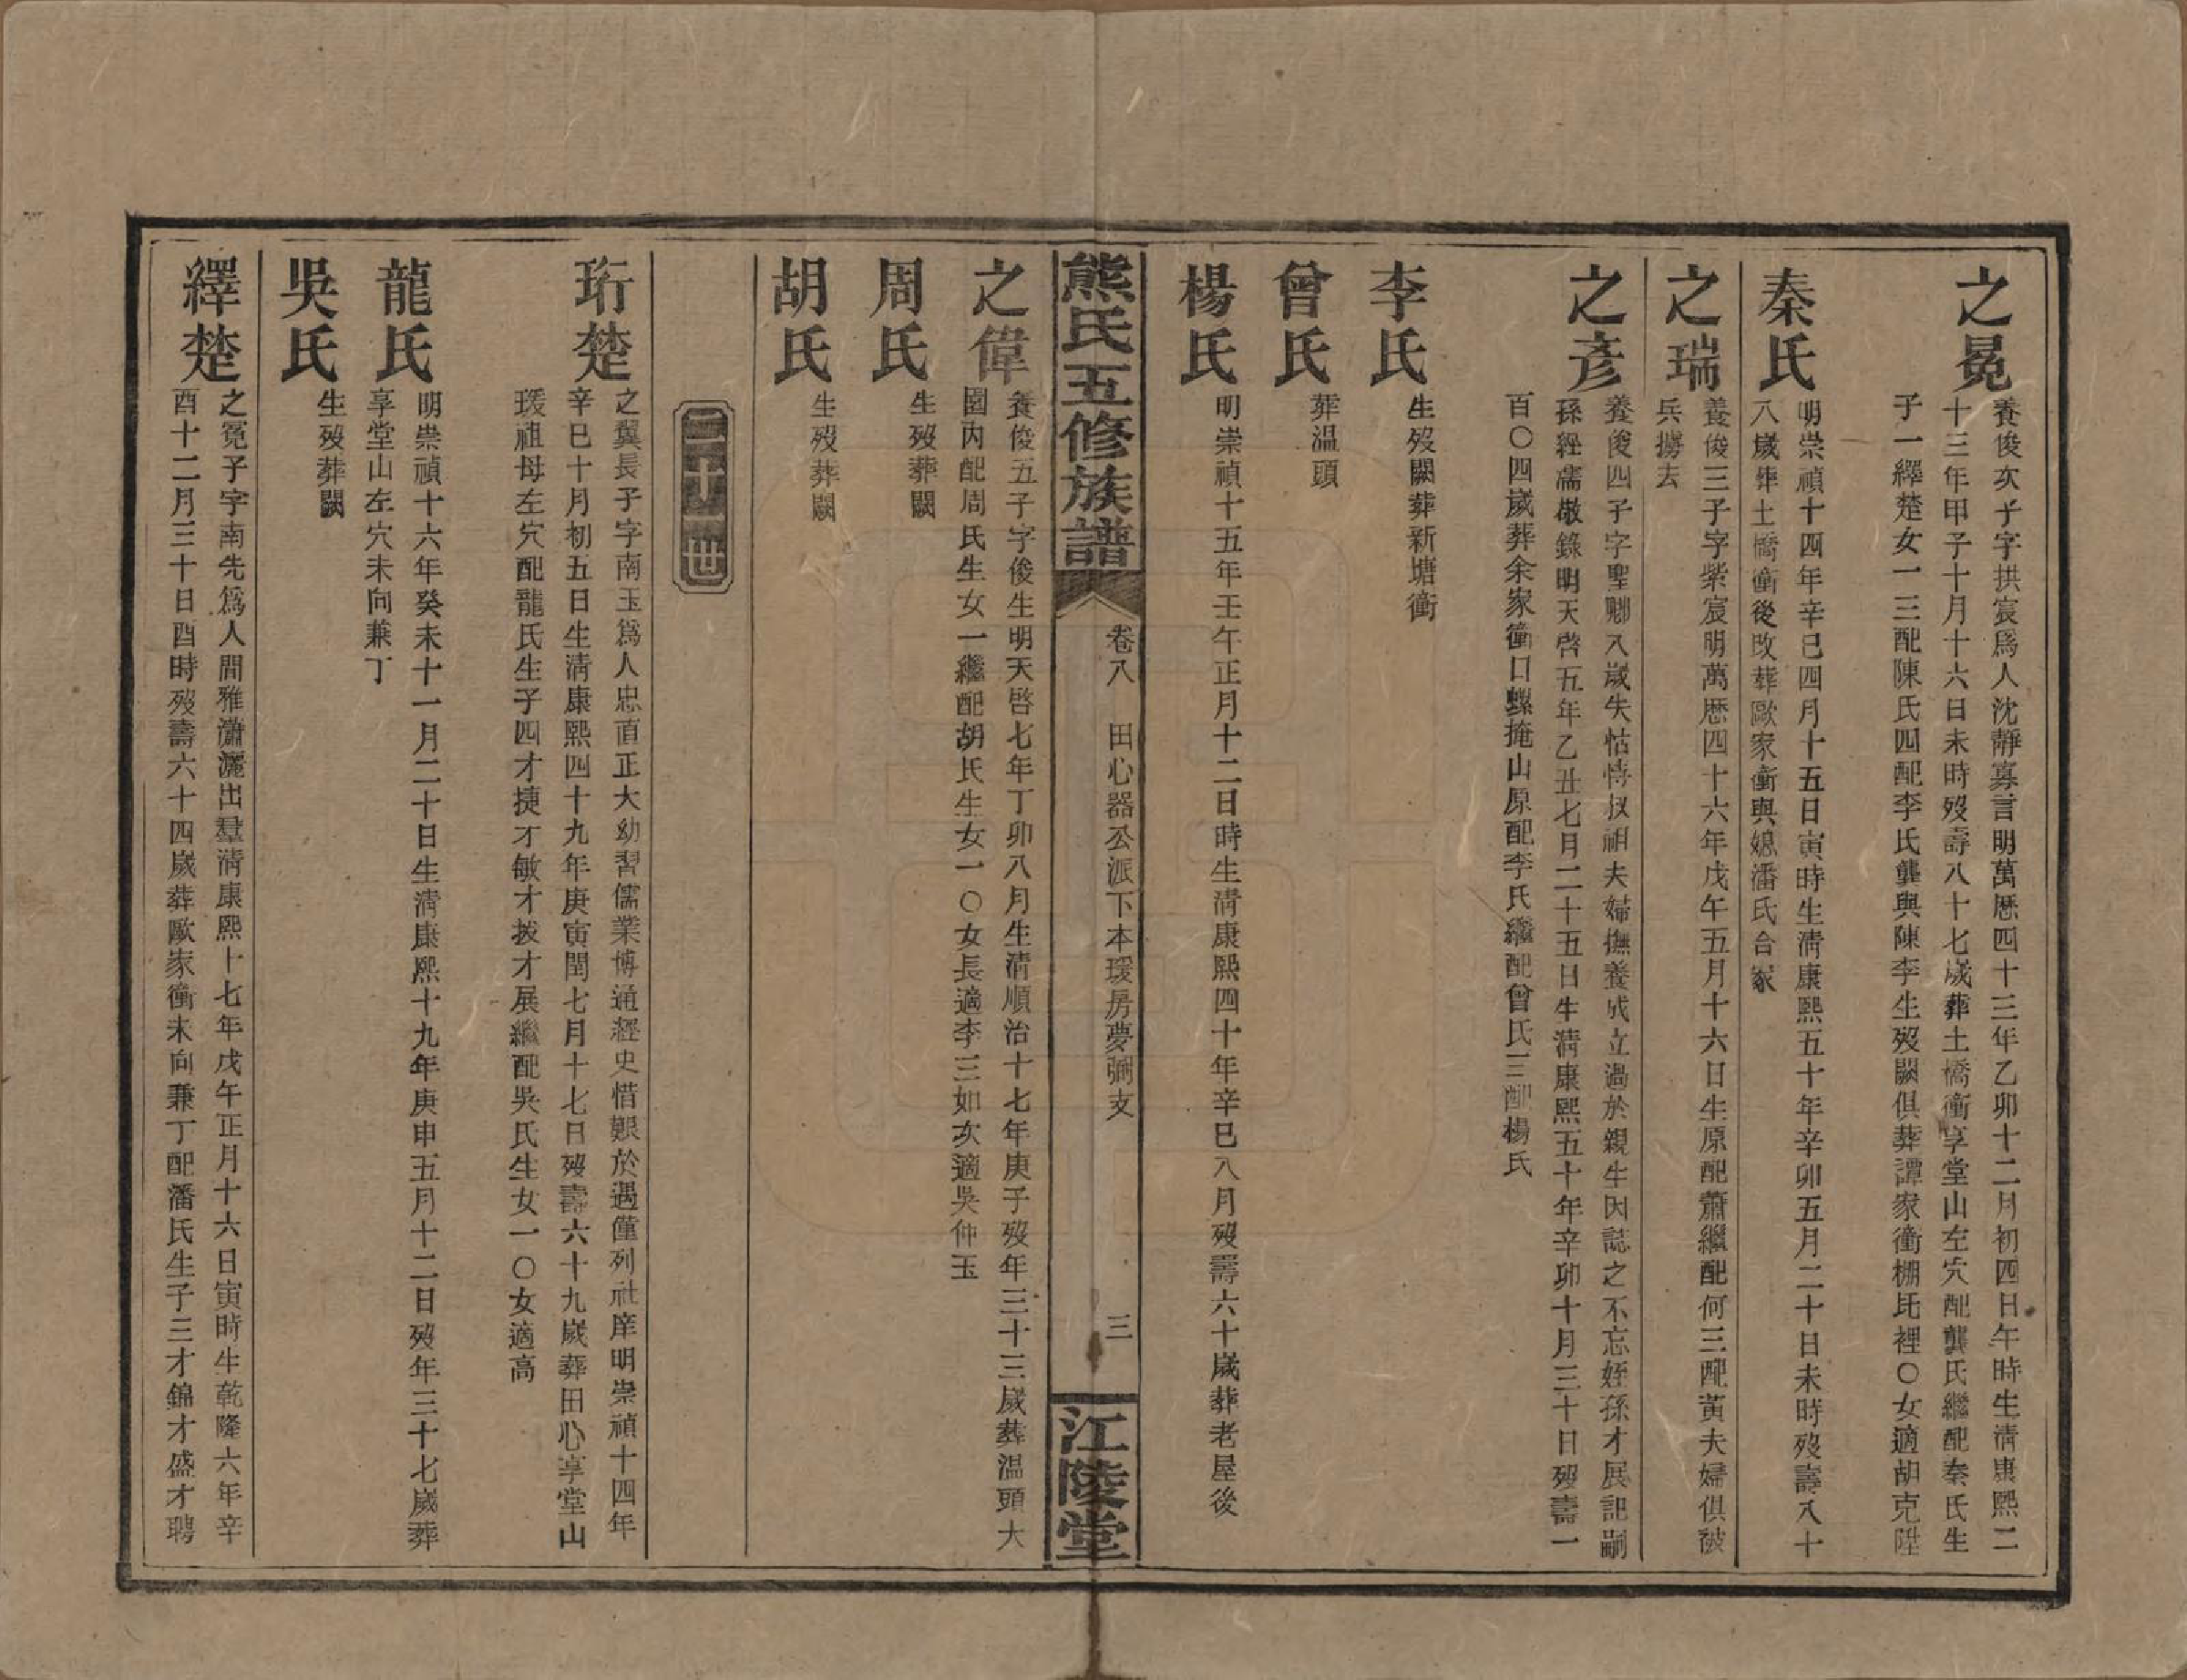 之冕
養俊次子字拱宸爲人沈靜寡言明萬厯四十三年乙卯十二月初四日午時生清康熙二
十三年甲子十月十六日未時歿壽八十七歲葬土橋衝享堂山左穴配龔氏繼配秦氏生
子一繹楚女一三配陳氏四配李氏龔與陳李生歿闕俱葬譚家衝棚𡉏裡〇女適胡克陞
秦氏
明崇禎十四年辛巳四月十五日寅時生清康熙五十年辛卯五月二十日未時歿壽八十
八歲葬土橋衝後改葬歐家衝與媳潘氏合冢
之瑞
養俊三子字紫宸明萬厯四十六年戊午五月十六日生原配蕭繼配何三配黃夫婦俱被
兵擄去
之彥
養俊四子字聖鄉八歲失怙恃叔祖夫婦撫養成立過於親生因誌之不忘姪孫才展記嗣
孫經濡敬錄明天啓五年乙丑七月二十五日生清康熙五十年辛卯十月三十日歿壽一
百〇四歲葬余家衝口螺掩山原配李氏繼配曾氏三配楊氏
李氏
生歿闕葬新塘衝
曾氏
葬温頭
楊氏
明崇禎十五年壬午正月十二日時生清康熙四十年辛巳八月歿壽六十歲葬老屋後
熊氏五修族譜
卷八 田心器公派下本瑗房夢弼支
三
江陵堂
之偉
養俊五子字俊生明天啓七年丁卯八月生清順治十七年庚子歿年三十三歲葬温頭大
園内配周氏生女一繼配胡氏生女一〇女長適李三如次適吳仲玉
周氏
生歿葬闕
胡氏
生歿葬闕
二十世
珩楚
之翼長子字南玉爲人忠直正大幼習儒業博通經史惜艱於遇僅列社庠明崇禎十四年
辛巳十月初五日生清康熙四十九年庚寅閏七月十七日歿壽六十九歲葬田心享堂山
瑗祖母左穴配龍氏生子四才捷才敏才拔才展繼配吳氏生女一〇女適高
龍氏
明崇禎十六年癸未十一月二十日生清康熙十九年庚申五月十二日歿年三十七歲葬
享堂山左穴未向兼丁
吳氏
生歿葬闕
繹楚
之冕子字南先爲人間雅瀟灑出羣清康熙十七年戊午正月十六日寅時生乾隆六年辛
酉十二月三十日酉時歿壽六十四歲葬歐家衝未向兼丁配潘氏生子三才錦才盛才聘